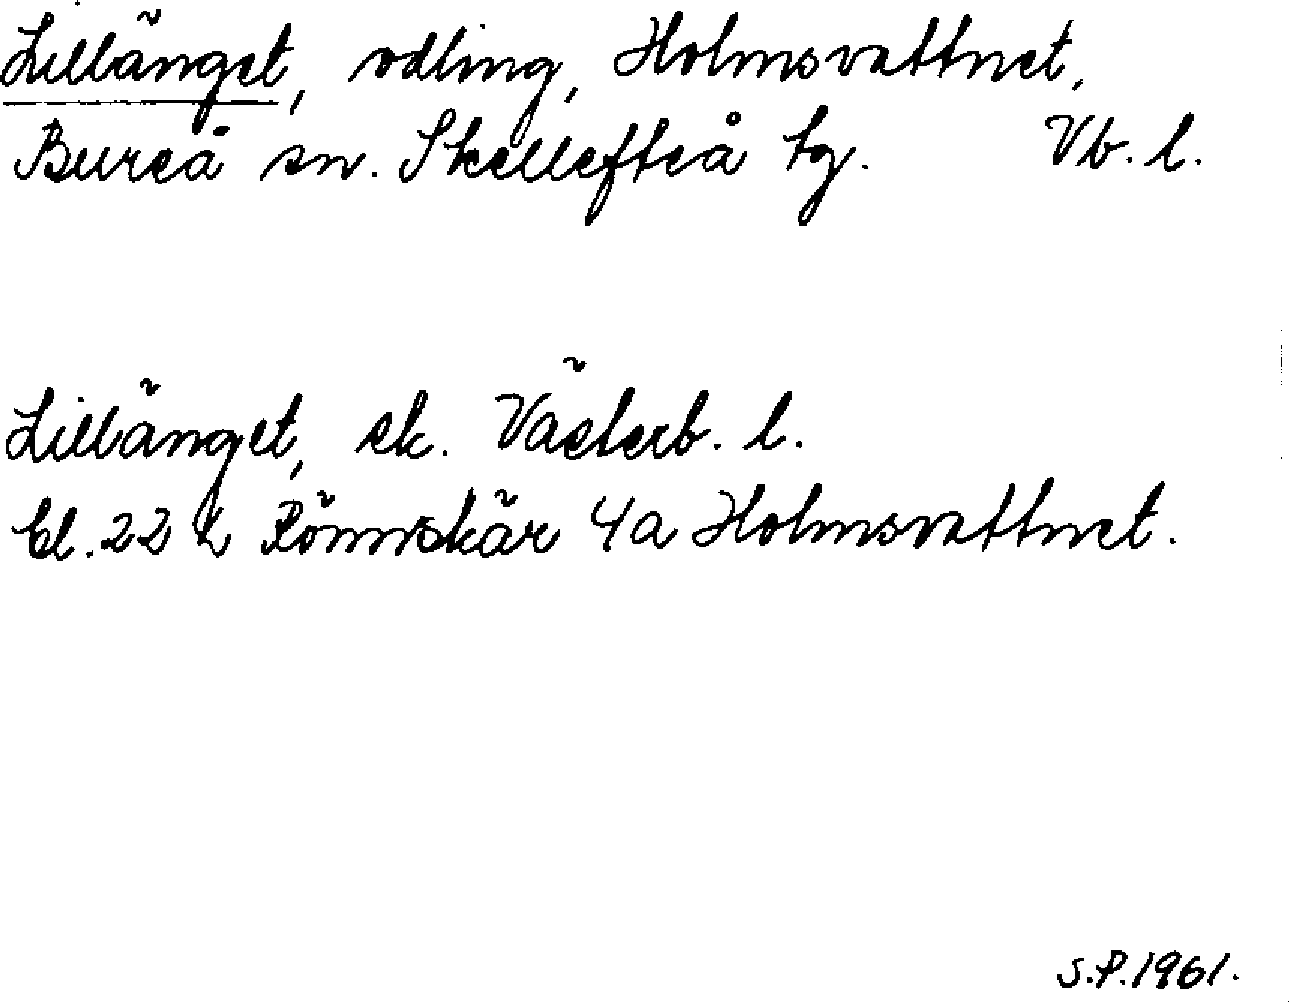 Lillänget, odling, Holmsvattnet,
Bureå sn. Skellefteå tg. Vb. l.
Lillänget, ek. Västerb. l.
bl. 22 L Rönnskär 4a Holmsvattnet.
S.P. 1961.